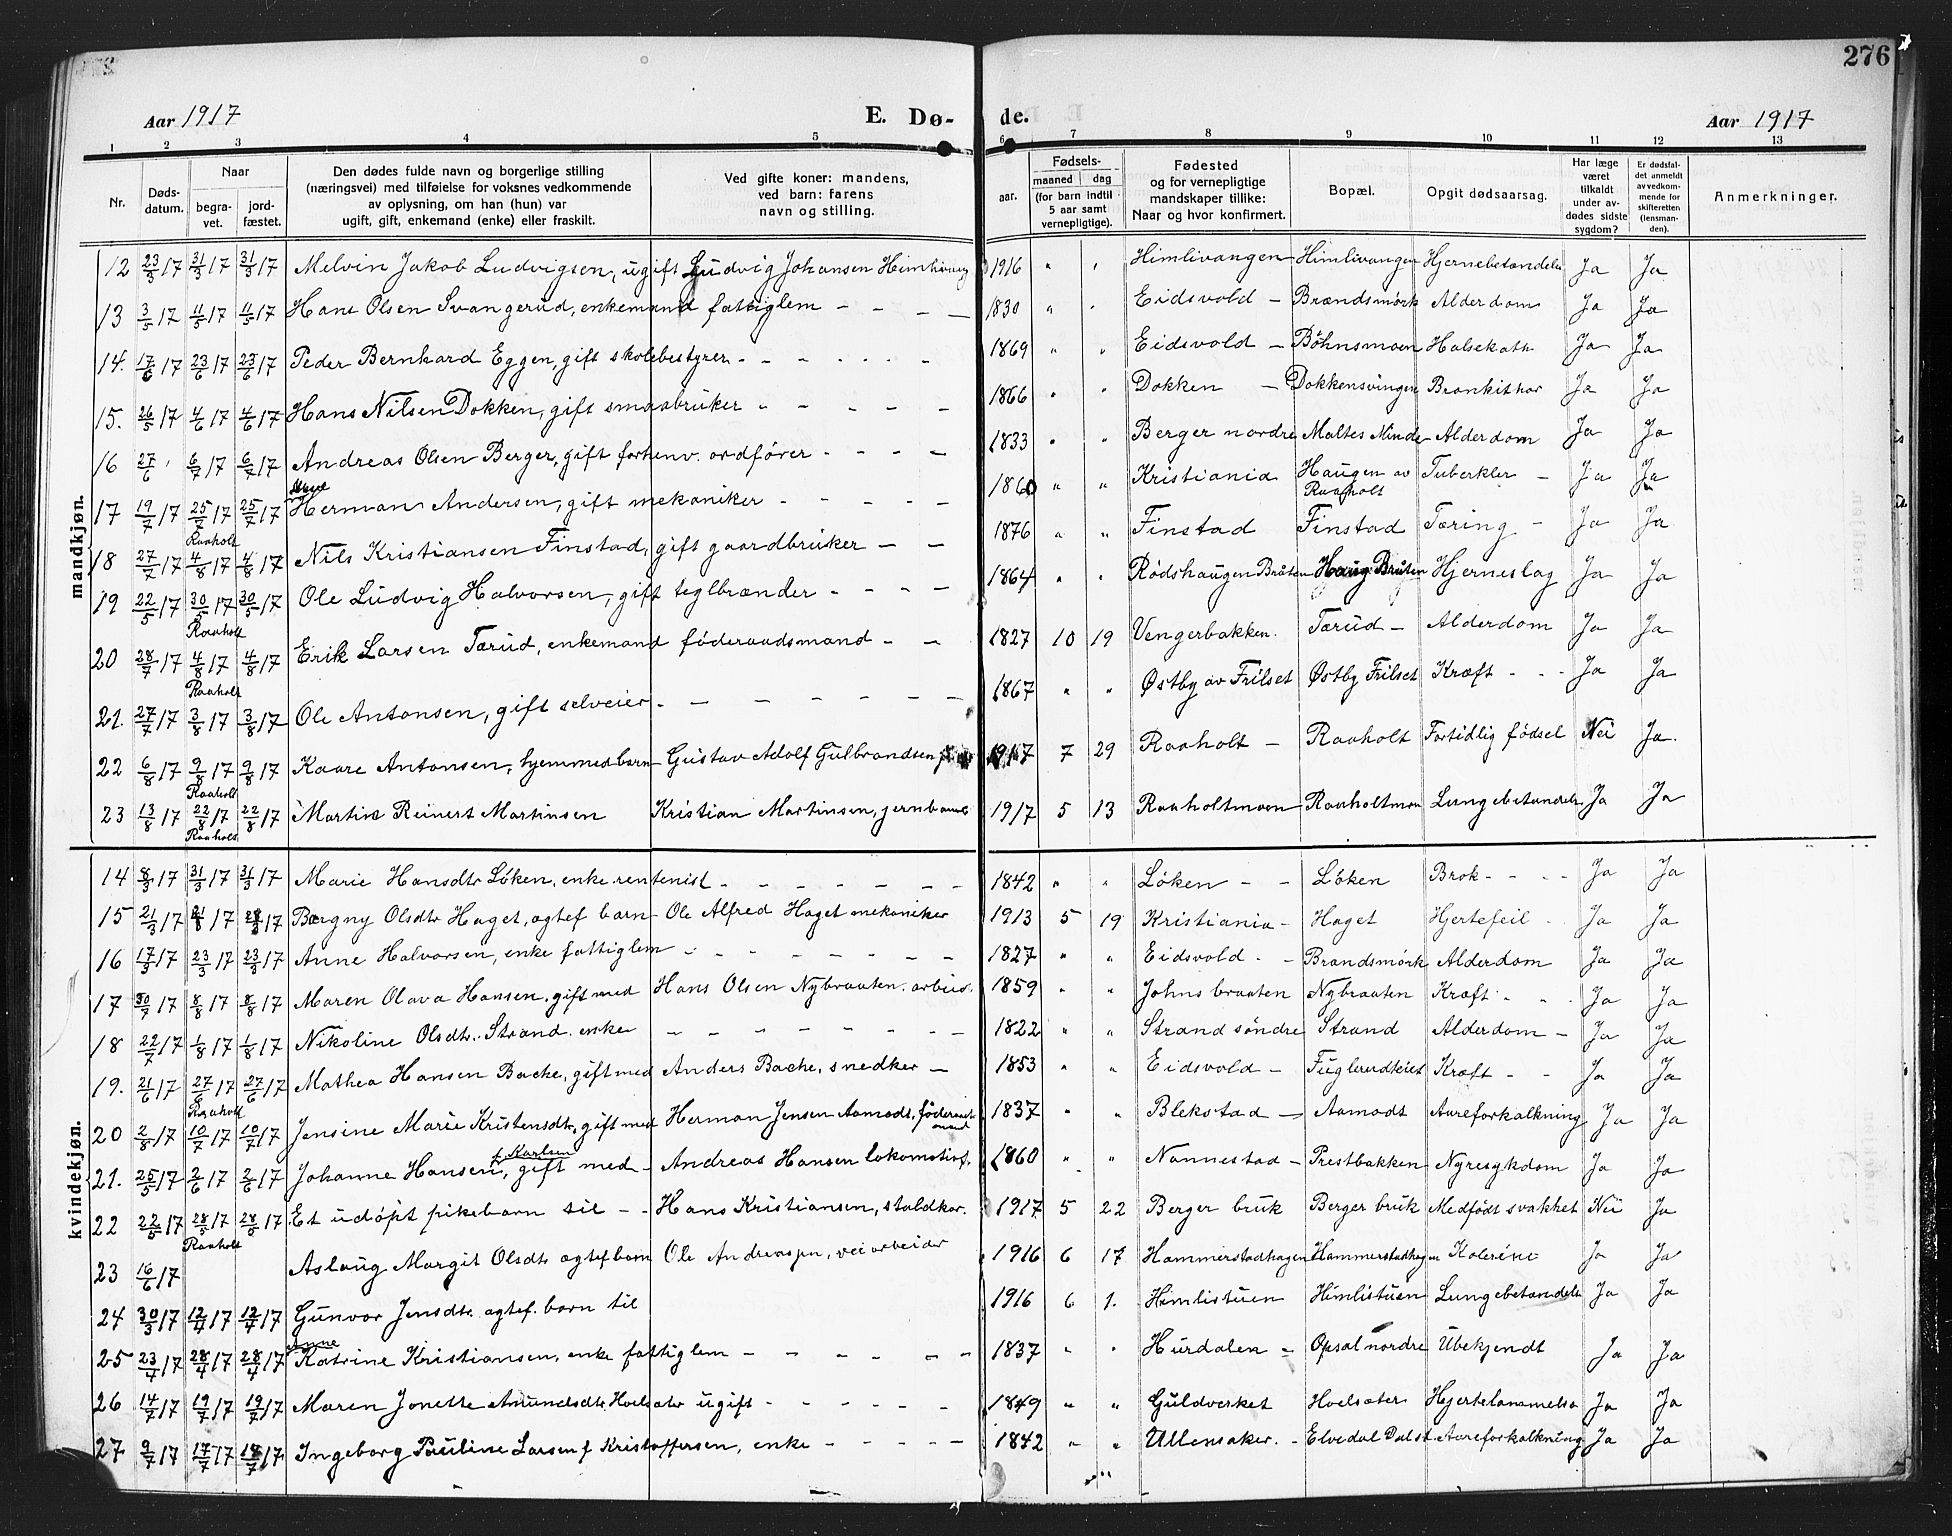 276
Aar 1917 E. Dø- de. Aar 1917
1 2 3 4 5 6 7 8 9 10 11 12 13
Nr. Døds-datum. Naar begra-vet. jord-fæstet. Den dødes fulde navn og borgerlige stilling (næringsvei) med tilføielse for voksnes vedkommende av oplysning, om han (hun) var ugift, gift, enkemand (enke) eller fraskilt. Ved gifte koner: mandens, ved barn: farens navn og stilling. aar. Fødsels- maaned dag (for barn indtil 5 aar samt vernepligtige). Fødested og for vernepligtige mandskaper tillike: Naar og hvor konfirmert. Bopæl. Opgit dødsaarsag. Har læge været tilkaldt under av-dødes sidste sygdom? Er dødsfal-det anmeldt av vedkom-mende for skifteretten (lensman-den). Anmerkninger.
mandkjøn.
12 23/3 17 31/3 17 31/3 17 Melvin Jakob Ludvigsen, ugift Ludvig Johansen 1916 " " Himlivangen Himlivangen Hjernebetændelse Ja Ja
13 3/5 17 11/5 17 11/5 17 Hans Olsen Svangerud, enkemand fattiglem – – – – 1830 " " Eidsvold – Brændsmørk Alderdom Ja Ja
14. 17/6 17 23/6 17 23/6 17 Peder Bernhard Eggen, gift skolebestyrer – – – – – – 1869 " " Eidsvold – Bøhnsmoen Halsekath Ja Ja
15. 26/5 17 4/6 17 4/6 17 Hans Nilsen Dokken, gift smaabruker – – – – – 1866 " " Dokken – Dokkensvingen Bronkithar Ja Ja
16 27/6 6/7 17 6/7 17 Andreas Olsen Berger, gift forhenv. ordfører – – – – 1833 " " Berger nordre Maltes Minde Alderdom Ja Ja
17 19/7 17 25/7 17 Raaholt 25/7 17 Herman Andersen, gift mekaniker – – – – – 1860 " " Kristiania Haugen av Raaholt Tuberkler – Ja Ja
18 27/7 17 4/8 17 4/8 17 Nils Kristiansen Finstad, gift gaardbruker – – 1876 " " Finstad Finstad Tæring – Ja Ja
19 22/5 17 30/5 17 Raaholt 30/5 17 Ole Ludvig Halvorsen, gift teglbrænder – – – – 1864 " " Rødshaugen Bråten Haug Bråten Hjerneslag Ja Ja
20 28/7 17 4/8 17 Raaholt 4/8 17 Erik Larsen Tærud, enkemand føderaadsmand – – 1827 10 19 Vengerbakken. Tærud – Alderdom Ja Ja
21. 27/7 17 3/8 17 3/8 17 Ole Antonsen, gift selveier – – – – – – 1867 " " Østby av Frilset Østby Frilset Kræft – – – Ja Ja
22 6/8 17 9/8 17 Raaholt 9/8 17 Kaare Antonsen, hjemmedbarn Gustav Adolf Gulbrandsen 1917 7 29 Raaholt – Raaholt Fortidlig fødsel Nei Ja.
23 13/8 17 22/8 17 Raaholt 22/8 17 Martin Reinert Martinsen Kristian Martinsen, 1917 5 13 Raaholtmoen Raaholtmoen Lungebetændels Ja Ja
kvindekjøn.
14 8/3 17 31/3 17 31/3 17 Marie Hansdtr Løken, enke rentenist – – – – – – 1842 " " Løken – – Løken Brok – – – – Ja Ja
15 21/3 17 17 17 Børgny Olsdtr Haget, ægtef barn Ole Alfred Haget mekaniker 1913 5 19 Kristiania – Haget Hjertefeil Ja Ja
16 17/3 17 23/3 17 23/3 17 Anne Halvorsen, enke fattiglem – – – – – – – 1827 " " Eidsvold – – Brandsmørk Alderdom Ja Ja
17 30/7 17 8/8 17 8/8 17 Maren Olava Hansen, gift med Hans Olsen Nybraaten. arbeid. 1859 " " Johnsbraaten Nybraaten Kræft – – – Ja Ja
18 22/7 17 1/8 17 1/8 17 Nikoline Olsdtr. Strand enke – – – – – – – 1822 " " Strand søndre Strand Alderdom – Ja Ja
19. 21/6 17 27/6 17 Raaholt 27/6 17 Mathea Hansen Bache, gift med Anders Bache, snedker – 1853 " " Eidsvold – Fuglerudteiet Kræft – – Ja Ja
20 2/8 17 10/7 17 10/7 17 Jensine Marie Kristensdtr, gift med Herman Jensen Aamodt, føderaadsmand 1837 " " Blekstad – Aamodt Aareforkalkning Ja Ja
21. 25/5 17 2/6 17 2/6 17 Johanne Hansen f. Karlsen, gift med – Andreas Hansen lokomotivf. 1860 " " Nannestad – Prestbakken Nyresykdom Ja Ja
22 22/5 17 28/5 17 Raaholt 28/5 17 Et udøpt pikebarn til – – Hans Kristiansen, staldkar. 1917 5 22 Berger bruk Berger bruk Medfødt svakhet Nei Ja
23 16/6 17 Aslaug Margit Olsdtr ægtef barn Ole Andreassen, veiarbeider 1916 6 17 Hammerstadhagen Hammerstadhagen Kolerine Ja Ja
24 30/3 17 12/4 17 12/4 17 Gunvor Jensdtr. ægtef. barn til 1916 6 1. Himlistuen Himlistuen Lungebetændels Ja Ja
25 23/4 17 28/4 17 28/4 17 Anne Katrine Kristiansen, enke fattiglem – – – – – – 1837 " " Hurdalen – Opsal nordre Ubekjendt Ja Ja
26 14/7 17 19/7 17 19/7 17 Maren Jonette Amundsdtr Hoelsæter ugift – – – – – 1849 " " Guldverket Hoelsæter Hjertelammelse Ja Ja
27 9/7 17 17/7 17 17/7 17 Ingeborg Pauline Larsen f Kristoffersen, enke – – – – – 1842 " " Ullensaker. – Elvedal Dalst Aareforkalkning Ja Ja